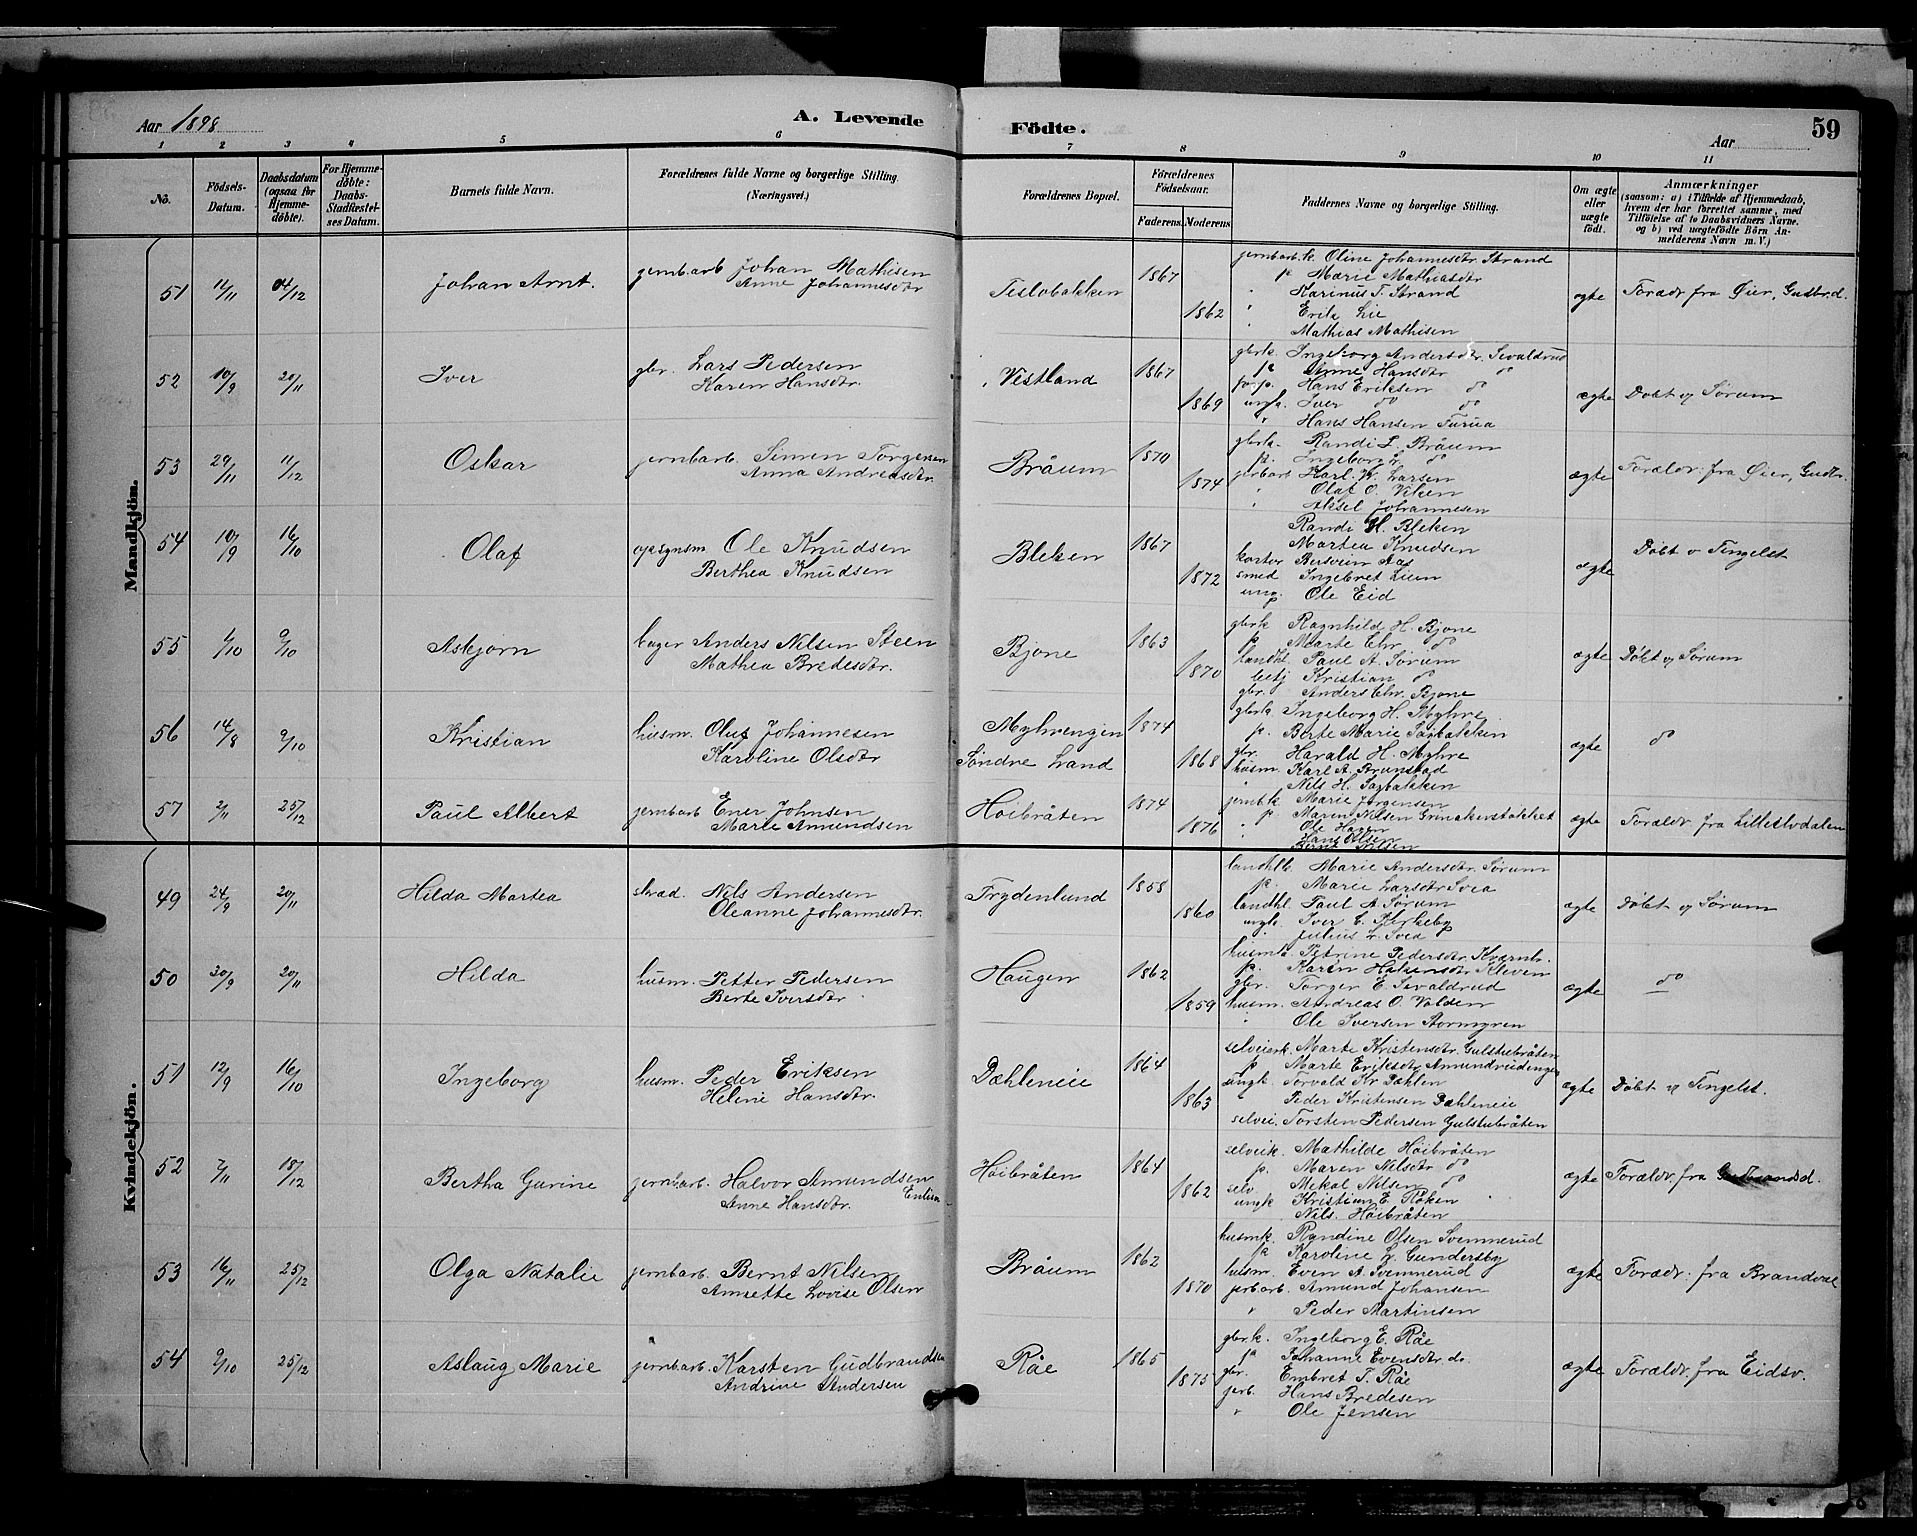 Aar 1898
A. Levende
Födte.
Aar
59
1 2 3 4 5 6 7 8 9 10 11
No.
Födsels-Datum.
Daabsdatum (ogsaa for Hjemmedøbte).
For Hjemmedøbte: Daabs-Stadfæstelses Datum.
Barnets fulde Navn.
Forældrenes fulde Navne og borgerlige Stilling. (Næringsvei.)
Forældrenes Bopæl.
Forældrenes Födselsaar.
Faderens. Moderens.
Faddernes Navne og borgerlige Stilling.
Om ægte eller uægte født.
Anmærkninger
(saasom: a) i Tilfælde af Hjemmedaab, hvem der har forrettet samme, med Tilföielse af to Daabsvidners Navne, og b) ved uægtefödte Börn Anmelderens Navn m. V.)
Mandkjön.
51 11/11 04/12 Johan Arnt. jernbarb Johan Mathisen
Anne Johannesdtr
Teslobakken 1867 1862
jernbarb.k. Oline Johannesdtr Strand
p Marie Mathiasdtr
" Karinus T. Strand
" Erik Lie
" Mathias Mathisen
ægte Forædr fra Øier, Gudbr.d.
52 10/9 20/11 Iver gbr. Lars Pedersen
Karen Hansdtr.
Vestland 1867 1869
gbrk. Ingeborg Andersdtr. Sevaldrud
p Anne Hansdtr do
Hans Eriksen do
ungk. Iver do do
" Hans Hansen Furua
ægte Døbt og Sørum
53 29/11 11/12 Oskar jernbarb. Simen Torgersen
Anna Andreasdtr.
Bråum 1870 1874
gbrk. Randi L. Bråum
p. Ingeborg L. do
jerbarb Karl. K. Larsen
" Olaf O. Viken
" Aksel Johannesen
ægte Foræld. fra Øier, Gudbr.
54 10/9 16/10 Olaf opsynsm Ole Knudsen
Berthea Knudsen
Bleken 1867 1872
Randi H. Bleken
Martea Knudsen
kontor Bersvein Aas
smed Ingebret Lien
ung. Ole Eid
ægte Døbt v Tingelst
55 1/10 9/10 Asbjørn bager Anders Nilsen Steen
Mathea Bredesdtr.
Bjone 1863 1870
gbrk Ragnhild H. Bjone
p Marte Chr do
landhl. Paul A. Sørum
betj Kristian do
gbr. Anders Chr. Bjone
ægte Døbt og Sørum
56 14/8 9/10 Kristian husm. Oluf Johannesen
Karoline Olsdtr
Myhrengen
Søndre Land 1874 1868
gbrk. Ingeborg H. Myhre
p. Berte Marie Sagbakken
gbr. Harald H. Myhre
husm. Karl A. Brunstad
" Nils H. Sagbakken
ægte do
57 2/11 25/12 Paul Albert jernbarb Ener Johnsen
Marie Amundsen
Høibråten 1874 1876
jernb.k. Marie Jørgensen
p. Maren Nilsen Grinakerstakket
" Ole Hagen
" Hans Olsen
ægte Forældr. fra Lilleelvdalen
Kvindekjön.
49 24/9 20/11 Hilda Martea Nils Andersen
Oleanne Johannesdtr.
Frydenlund 1858 1860
landhlk. Marie Andersdtr Sørum
p. Marie Larsdtr Svea
landhl. Paul A Sørum
ungk. Iver E. Kirkeby
" Julius L. Svea
ægte Døbt og Sørum
50 30/9 20/11 Hilda husm. Petter Pedersen
Berte Iversdtr.
Haugen 1862 1859
husmk. Petrine Pedersdtr. Kværnbr.
p. Karen Hakensdtr Kleven
gbr. Torger E. Sevaldrud
husm. Andreas O. Volden
" Ole Iversen Stormyren
ægte do
51 12/9 16/10 Ingeborg husm. Peder Eriksen
Helene Hansdtr.
Dæhleneie 1864 1863
selveierk. Marte Kristensdtr. Gulstubråten
p Marte Eriksdtr Amundrudengen
ungk. Torvald Kr Dæhlen
" Peder Kristensen Dæhleneie
selvei. Torsten Pedersen Gulstubråten
ægte Døbt v Tingelst.
52 7/11 18/12 Bertha Gurine jernbarb. Halvor Amundsen
Anne Hansdtr.
Høibråten 1864 1862
selveik. Mathilde Høibråten
p. Maren Nilsdtr do
selv. Mekal Nilsen do
ungk Kristian E. Røken
Nils. Høibråten
ægte Forældr. fra Gudbrandsd.
53 16/11 25/12 Olga Natalie jernbarb. Bernt Nilsen
Annette Lovise Olsen
Bråum 1862 1870
husmk. Ryndine Olsen Svemmerud
p Karoline L. Gundersby
husm. Even A. Svemmerud
jerbarb. Amund Johansen
" Peder Martinsen
ægte Forædr. fra Brandval
54 9/10 25/12 Aslaug Marie jernbarb. Karsten Gudbrandsen
Andrine Andersen
Råe 1865 1875
gbrk. Ingeborg E. Råe
p Johanne Evensdtr. do.
gbr. Embret T. Råe
jerb. Hans Bredesen
" Ole Jensen
ægte Forældr. fra Eidsv.